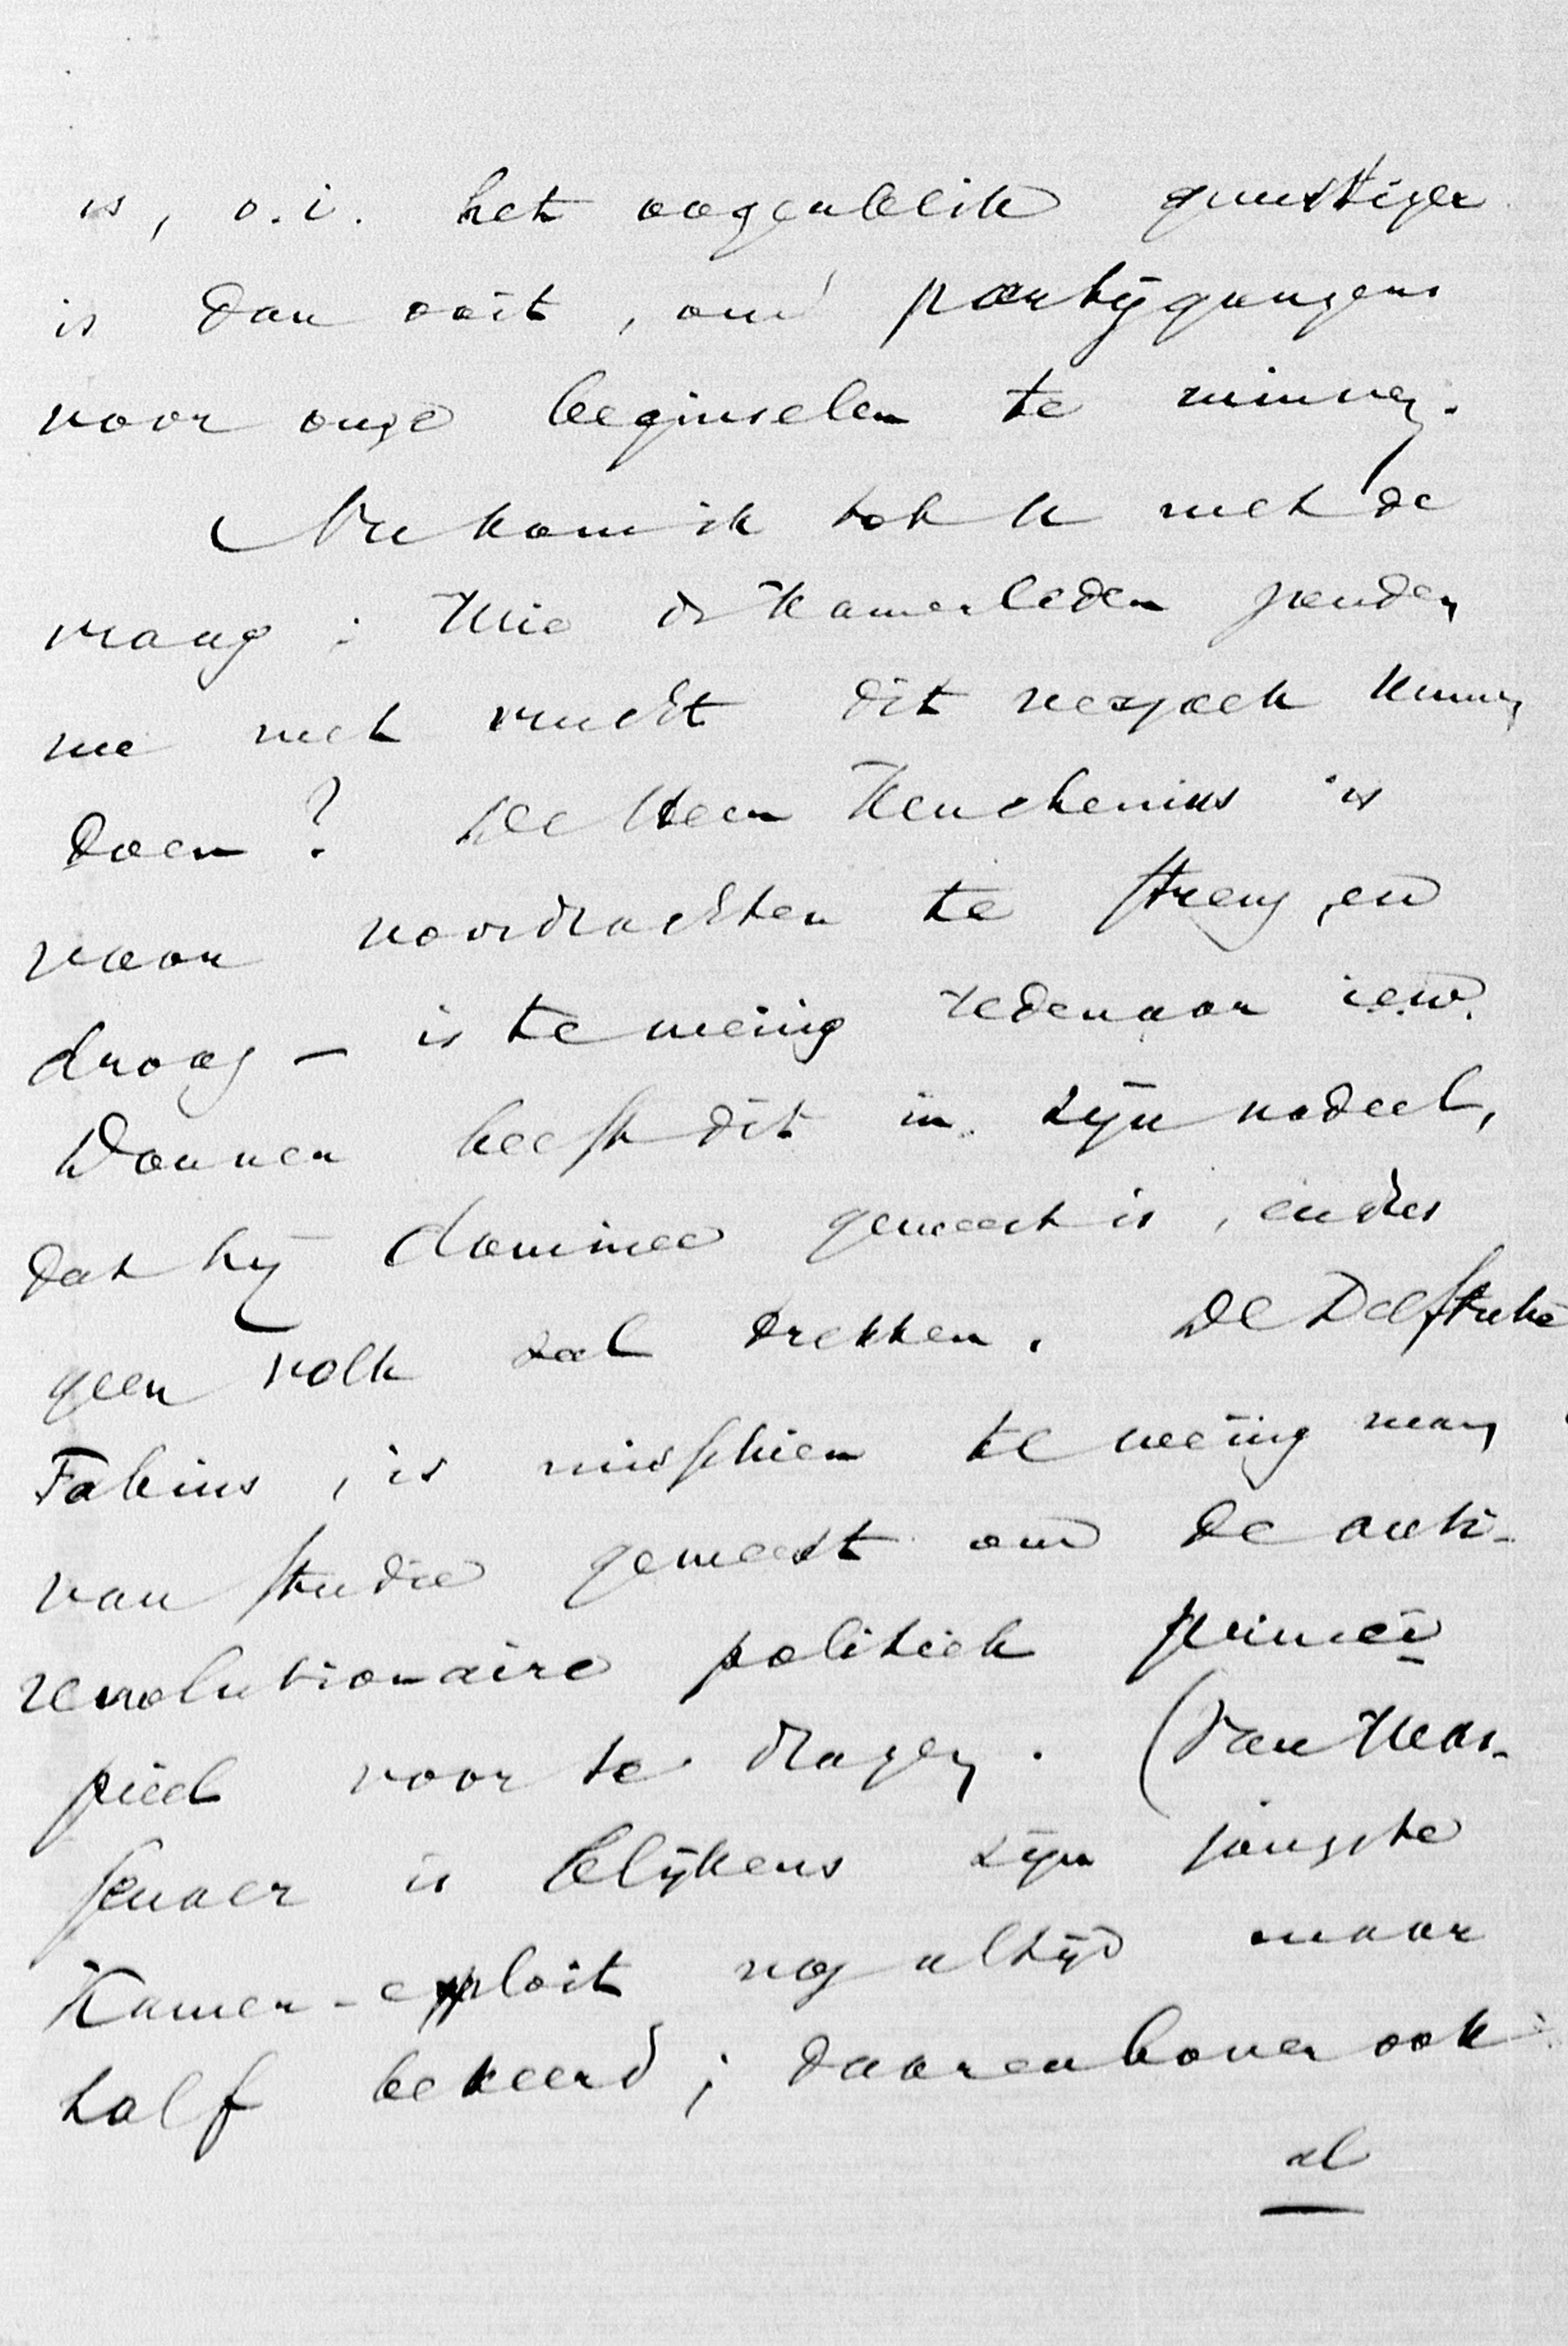 is, o.i. het oogenblik gunstiger
is dan ooit, om partijgangers
voor onze beginselen te winnen.
Nu kom ik tot U met de
vraag: Wie der Kamerleden zouden
we met vrucht dit verzoek kunnen
doen? De Heer Keuchenius is
voor voordrachten te streng en
droog – is te weinig redenaar ieder.
Donner heeft dit in zijn nadeel,
dat hij dominee geweest is, en dus
geen volk zal trekken. De Delftsche
Fabius, is misschien te weinig man
van studie geweest om de anti-
revolutionaire politiek princi-
pieel voor te dragen. (Van Was-
senaer is blijkens zijn jongste
Kamer-exploit nog altijd maar
half bekeerd; daarenboven ook
al